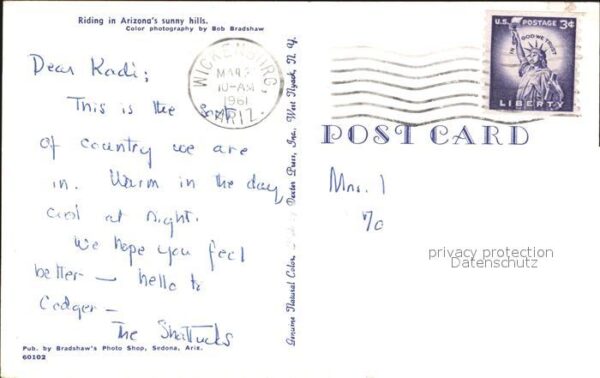 Riding in Arizona's sunny hills.
Color photography by Bob Bradshaw
Dear Kadi;
This is the sort
of country we are
in. Warm in the day
cool at night.
We hope you feel
better – hello to
Codger –
The Shattucks
Pub. by Bradshaw's Photo Shop, Sedona, Ariz.
60102
WICKENBURG,
MAR
10-AM
1961
ARIZ.
Genuine Natural Color, Dexter Press, Inc., West Nyack, N. Y.
U.S. POSTAGE 3¢
IN GOD WE TRUST
LIBERTY
POST CARD
Mrs. 1
70
privacy protection
Datenschutz